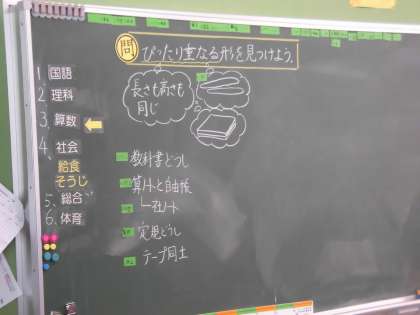 問 ぴったり重なる形を見つけよう。
長さも高さも
同じ
1 国語
2 理科
3 算数
4 社会
給食
そうじ
5. 総合
6. 体育
教科書どうし
算ノートと自由帳
定規どうし
テープ同士